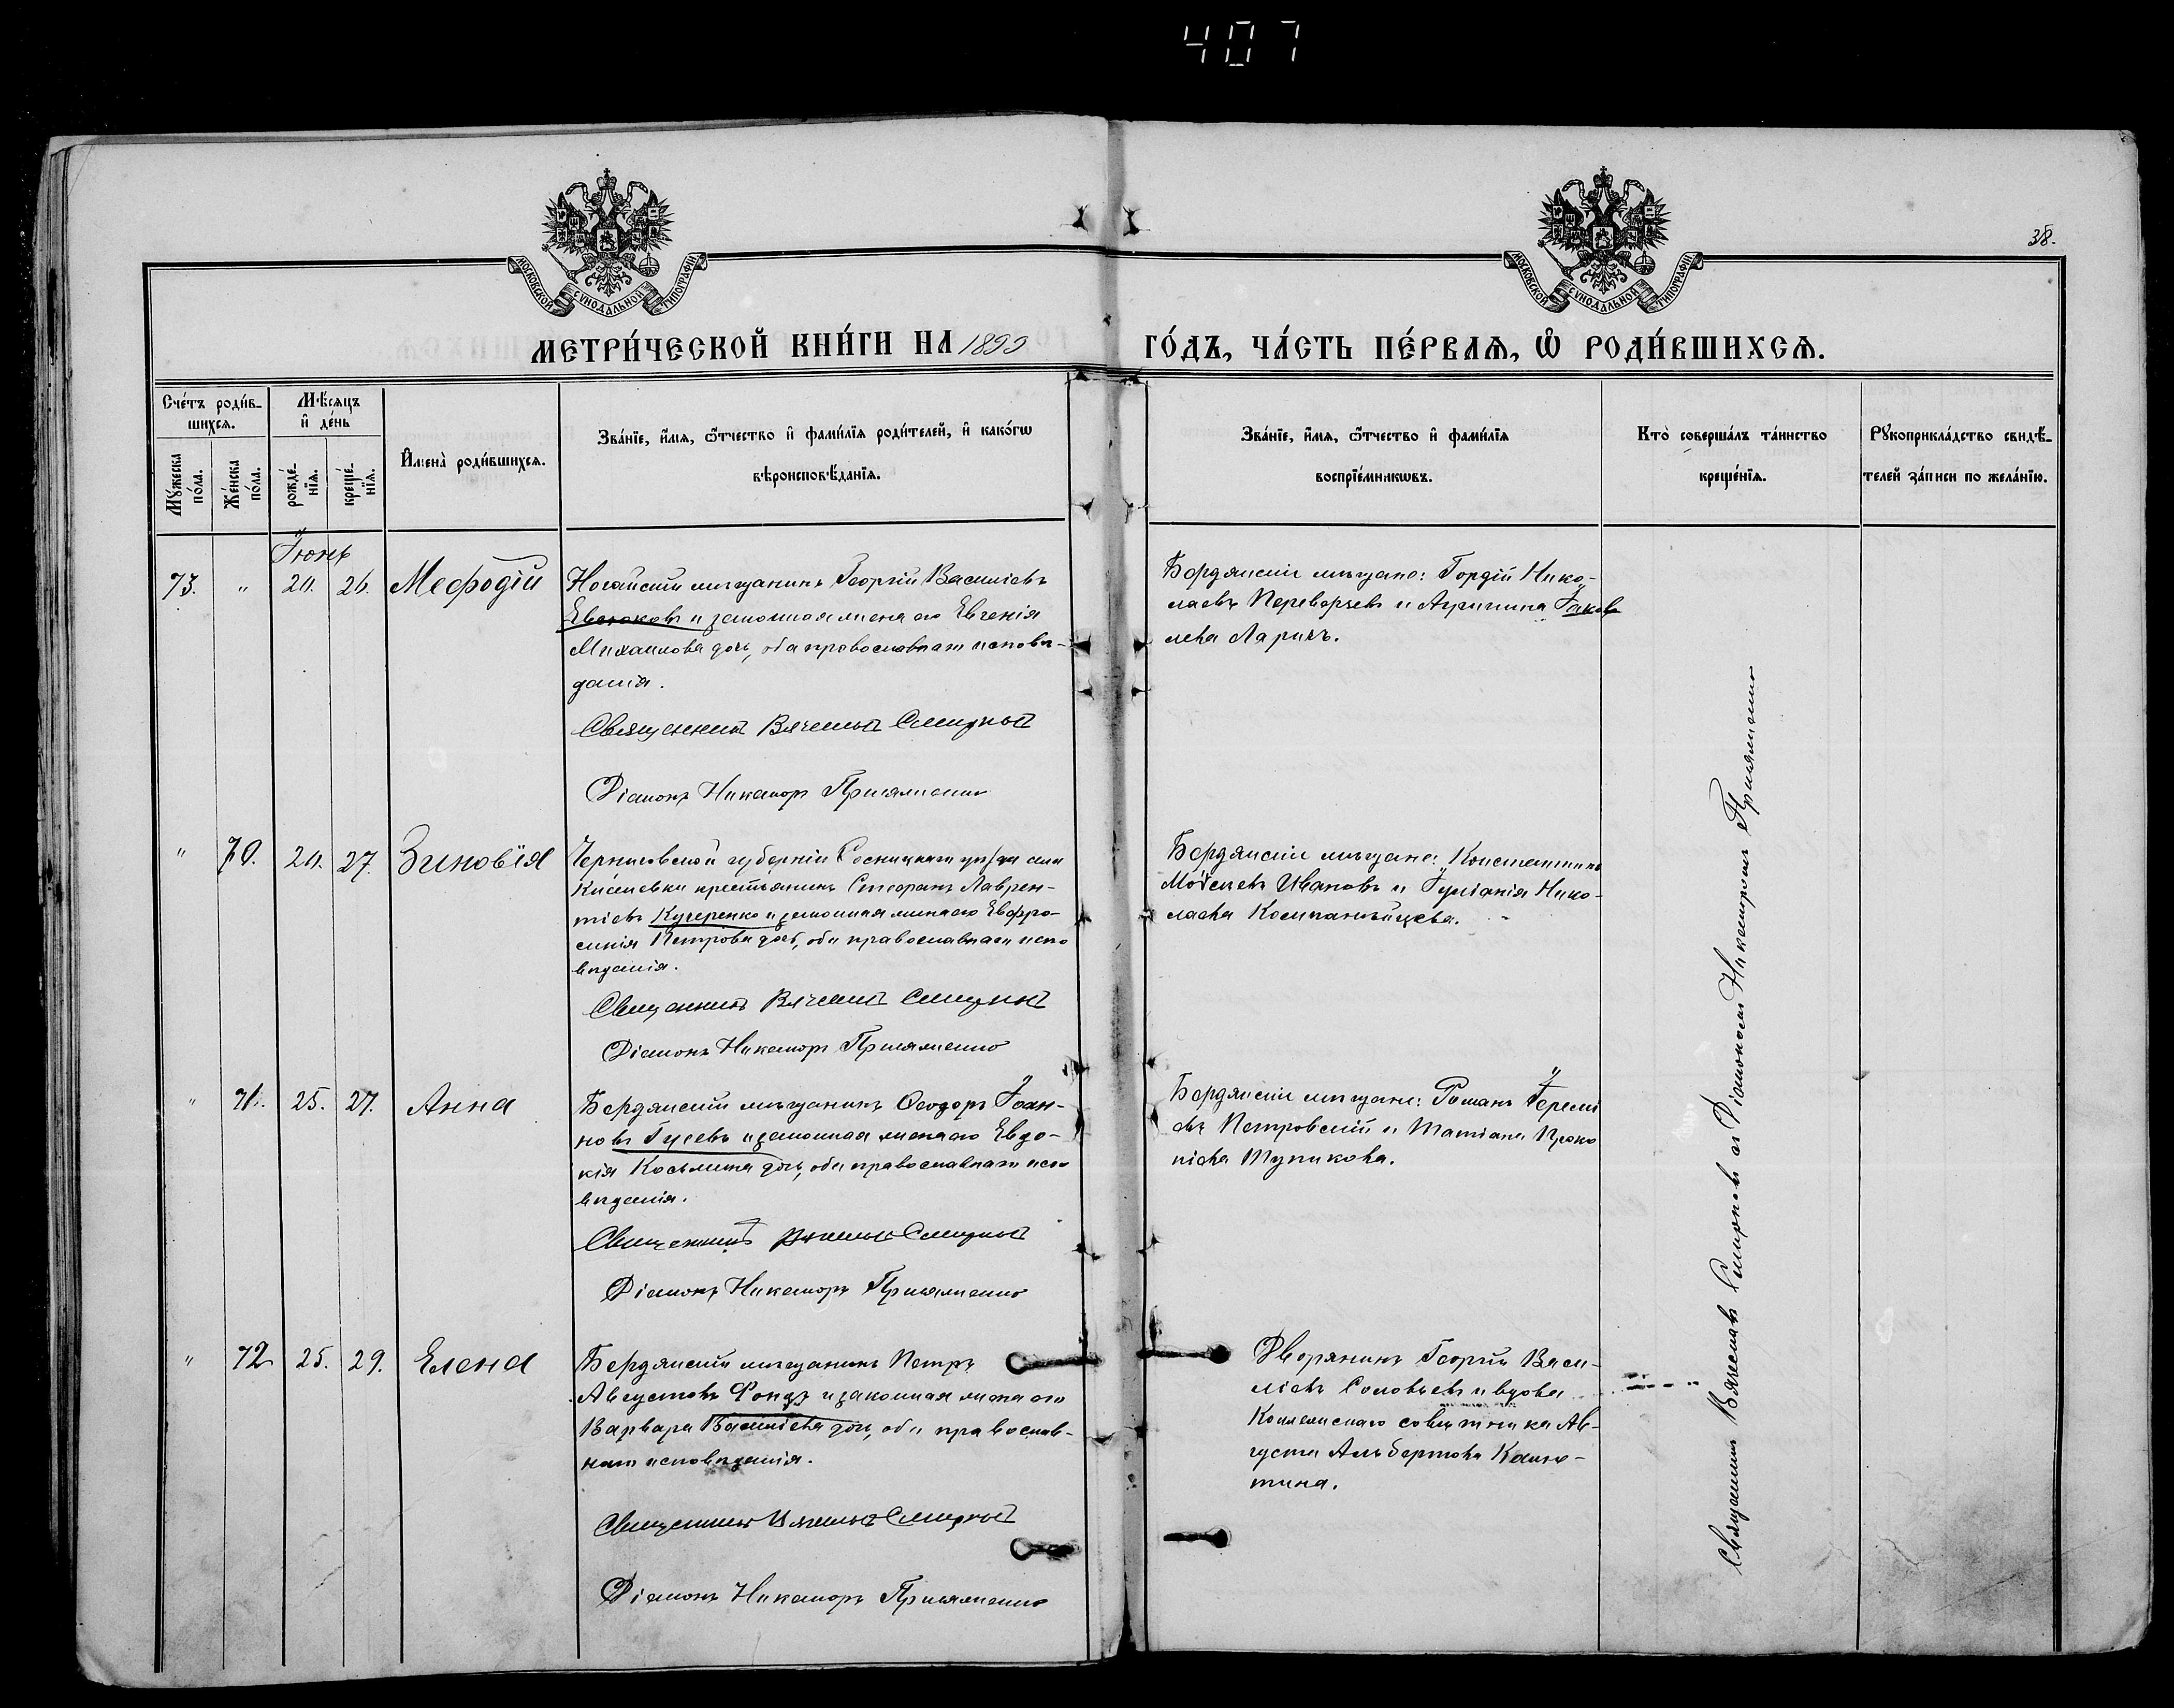 407
38.
МОСКОВСКОЙ СѴНОДАЛЬНОЙ ТИПОГРАФІИ
МОСКОВСКОЙ СѴНОДАЛЬНОЙ ТИПОГРАФІИ
МЕТРИ́ЧЕСКОЙ КНИ́ГИ НА 1899
ГО́ДЪ, ЧА́СТЬ ПЕ́РВАѦ, Ѽ РОДИ́ВШИХСѦ.
Сче́тъ роди́в-
шихсѧ.
Мꙋ́жеска по́ла.
Же́нска по́ла.
Мѣ́сѧцъ
и҆ де́нь
рожде́-
нїѧ.
креще́-
нїѧ.
И҆мена̀ роди́вшихсѧ.
Зва́нїе, и҆́мѧ, ѻ҆́тчество и҆ фами́лїѧ роди́телей, и҆ како́гѡ
вѣроисповѣ́данїѧ.
Зва́нїе, и҆́мѧ, ѻ҆́тчество и҆ фами́лїѧ
воспрїе́мникѡвъ.
Кто̀ соверша́лъ та́инство
креще́нїѧ.
Рꙋкоприкла́дство свидѣ́-
телей за́писи по жела́нїю.
Іюнь
73. " 20. 26. Мефодій
Ногайскій мѣщанинъ Георгій Василіевъ
и законная жена его Евгенія
Михаилова дочь, оба православнаго исповѣ-
данія.
Священникъ Вячеславъ Смирновъ
Діаконъ Никаноръ
Бердянскіе мѣщане: Гордій Нико-
лаевъ и Агрипина Іаков
лева Ларинъ.
" 70. 20. 27. Зиновія
Черниговской губерніи Сосницкаго уѣзда села
Киселевки крестьянинъ Стефанъ Лаврен-
тіевъ Кучеренко и законная жена его Евфро-
синія Петрова дочь, оба православнаго испо
вѣданія.
Священникъ Вячеславъ Смирновъ
Діаконъ Никаноръ
Бердянскіе мѣщане: Константинъ
Моѵсеевъ Ивановъ и Іуліанія Нико-
лаева Компанѣйцева.
" 71. 25. 27. Анна
Бердянскій мѣщанинъ Ѳеодоръ Іоан-
новъ Гусевъ и законная жена его Евдо-
кія Косьмина дочь, оба православнаго испо
вѣданія.
Священникъ Вячеславъ Смирновъ
Діаконъ Никаноръ
Бердянскіе мѣщане: Романъ Іеремі
евъ Петровскій и Татіана Проко
піева Тупикова.
" 72 25. 29. Елена
Бердянскій мѣщанинъ Петръ
Августовъ Фондъ и законная жена его
Варвара Василіева дочь, оба православ-
наго исповѣданія.
Священникъ Вячеславъ Смирновъ
Діаконъ Никаноръ
Дворянинъ Георгій Васи-
ліевъ Соловьевъ и вдова
Коллежскаго совѣтника Ав-
густа Альбертова
тина.
Священникъ Вячеславъ Смирновъ съ Діакономъ Никаноромъ